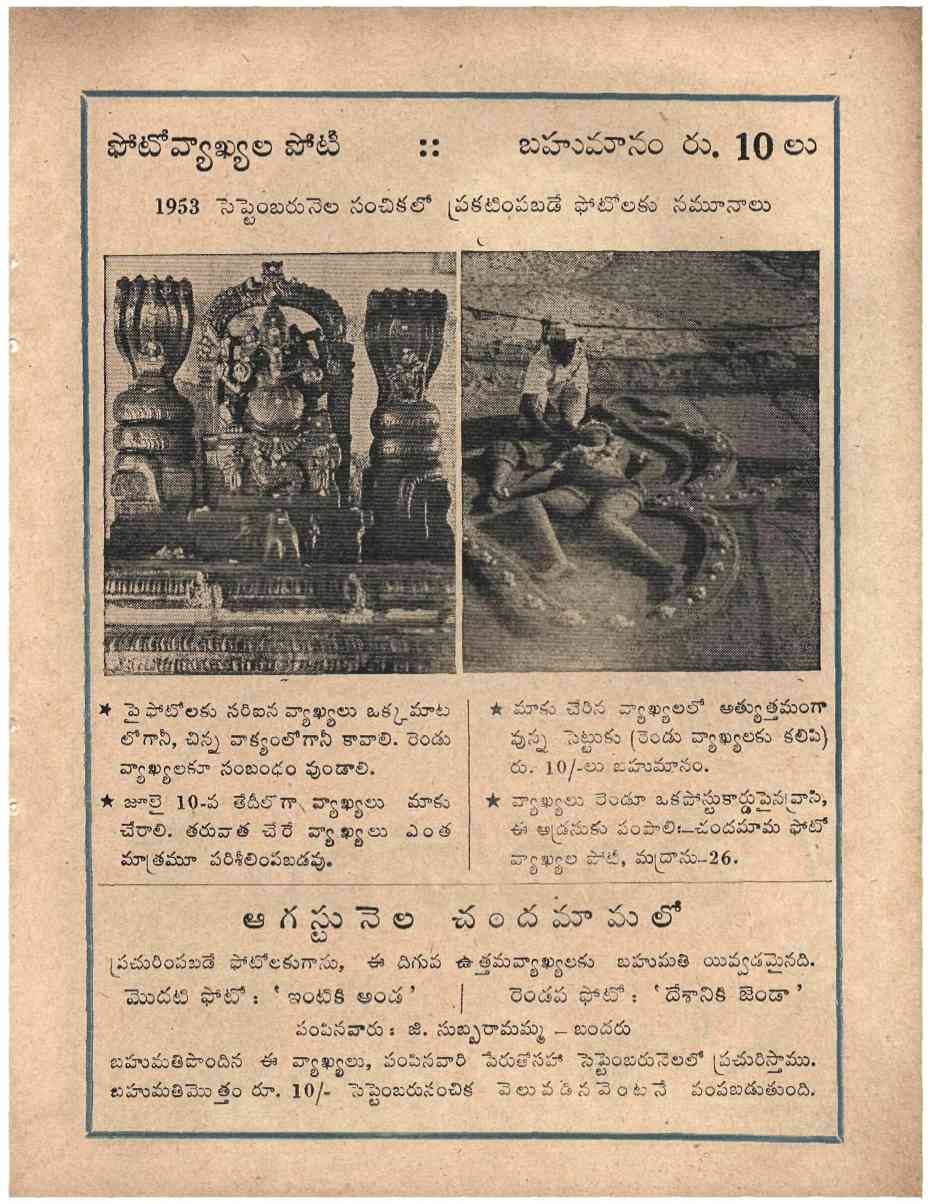 ఫోటోవ్యాఖ్యల పోటీ :: బహుమానం రు. 10 లు
1953 సెప్టెంబరునెల సంచికలో ప్రకటింపబడే ఫోటోలకు నమూనాలు
★ పై ఫోటోలకు సరిఐన వ్యాఖ్యలు ఒక్కమాట
లోగానీ, చిన్న వాక్యంలోగానీ కావాలి. రెండు
వ్యాఖ్యలకూ సంబంధం వుండాలి.
★ జూలై 10-వ తేదీలోగా వ్యాఖ్యలు మాకు
చేరాలి. తరువాత చేరే వ్యాఖ్యలు ఎంత
మాత్రమూ పరిశీలింపబడవు.
★ మాకు చేరిన వ్యాఖ్యలలో అత్యుత్తమంగా
వున్న సెట్టుకు (రెండు వ్యాఖ్యలకు కలిపి)
రు. 10/-లు బహుమానం.
★ వ్యాఖ్యలు రెండూ ఒకపోస్టుకార్డుపైనవ్రాసి,
ఈ అడ్రసుకు పంపాలి:—చందమామ ఫోటో
వ్యాఖ్యల పోటీ, మద్రాసు-26.
ఆగస్టునెల చందమామలో
ప్రచురింపబడే ఫోటోలకుగాను, ఈ దిగువ ఉత్తమవ్యాఖ్యలకు బహుమతి యివ్వడమైనది.
మొదటి ఫోటో : 'ఇంటికి అండ' | రెండవ ఫోటో : 'దేశానికి జెండా'
పంపినవారు : జి. సుబ్బరామమ్మ - బందరు
బహుమతిపొందిన ఈ వ్యాఖ్యలు, పంపినవారి పేరుతోసహా సెప్టెంబరునెలలో ప్రచురిస్తాము.
బహుమతిమొత్తం రూ. 10/- సెప్టెంబరుసంచిక వెలువడినవెంటనే పంపబడుతుంది.